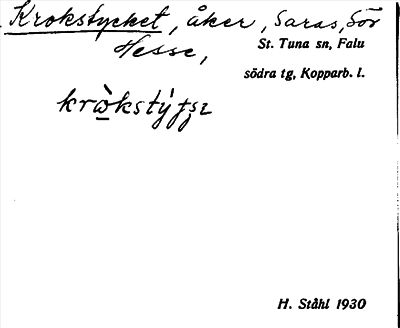 Krokstycket, åker, Saras, Sör
Hesse,
St. Tuna sn, Falu
södra tg, Kopparb. l.
H. Ståhl 1930